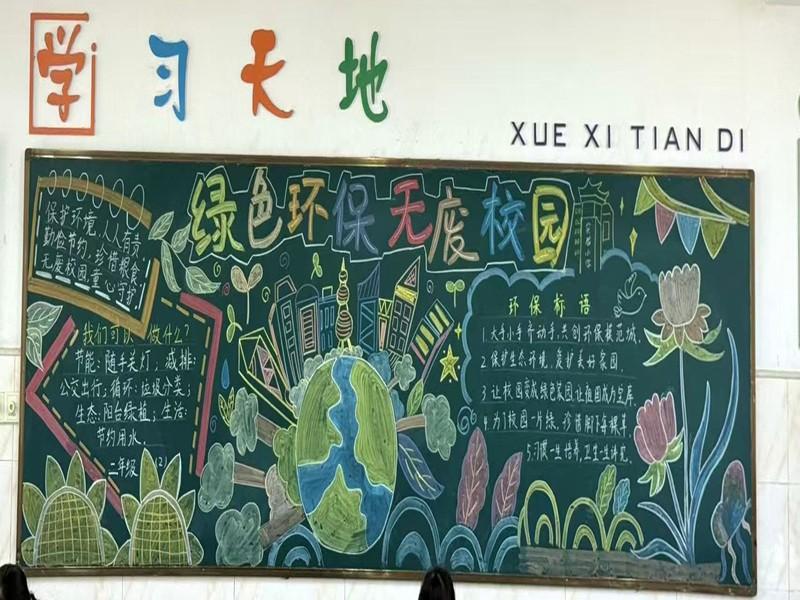 学习天地
XUE XI TIAN DI
绿色环保无废校园
保护环境,人人有责
勤俭节约,珍惜粮食
无废校园童心守护!
我们可以做什么?
节能:随手关灯;减排:
公交出行;循环:垃圾分类;
生态:阳台绿植;生活:
节约用水。
二年级(2)
环保标语
1.大手小手齐动手,共创环保模范城.
2.保护生态环境,爱护美好家园.
3.让校园变成绿色家园,让祖国成为宝库.
4.为了校园一片绿,珍惜脚下每棵草.
5.习惯一生培养,卫生一生讲究.